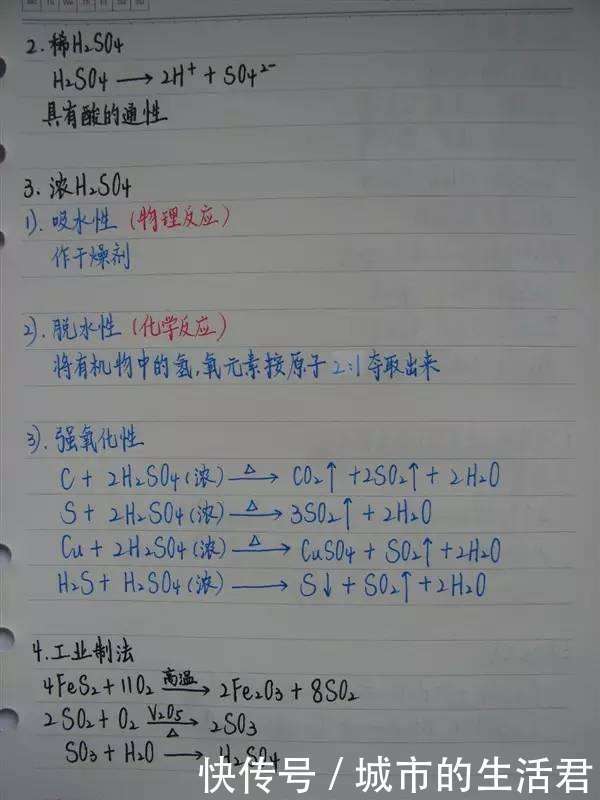 2. 稀H₂SO₄
H₂SO₄ ⟶ 2H⁺ + SO₄²⁻
具有酸的通性
3. 浓H₂SO₄
1). 吸水性 (物理反应)
作干燥剂
2). 脱水性 (化学反应)
将有机物中的氢,氧元素按原子2:1夺取出来
3). 强氧化性
C + 2H₂SO₄(浓) —△→ CO₂↑ + 2SO₂↑ + 2H₂O
S + 2H₂SO₄(浓) —△→ 3SO₂↑ + 2H₂O
Cu + 2H₂SO₄(浓) —△→ CuSO₄ + SO₂↑ + 2H₂O
H₂S + H₂SO₄(浓) ⟶ S↓ + SO₂↑ + 2H₂O
4. 工业制法
4FeS₂ + 11O₂ —高温→ 2Fe₂O₃ + 8SO₂
2SO₂ + O₂ —V₂O₅/△→ 2SO₃
SO₃ + H₂O ⟶ H₂SO₄
快传号 / 城市的生活君